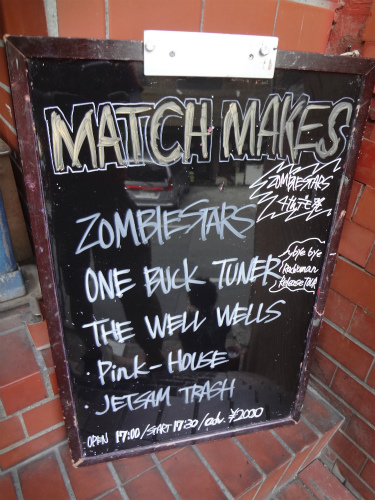 MATCH MAKES
ZOMBIESTARS
ZOMBIESTARS
ONE BUCK TUNER
bye bye
Release TOUR
THE WELL WELLS
・Pink-HOUSE
・JETSAM TRASH
OPEN 17:00/START 17:30/adv. ¥2000